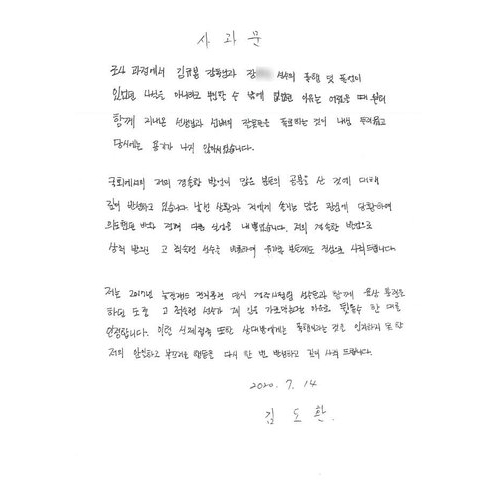 사과문
조사 과정에서 김규봉 감독님과 장 선수의 폭행 및 폭언이
있었던 사실을 아니라고 부인할 수 밖에 없었던 이유는 어렸을 때부터
함께 지내온 선생님과 선배의 잘못을 폭로하는 것이 내심 두려웠고
당시에는 용기가 나지 않아서였습니다.
국회에서의 저의 경솔한 발언이 많은 분들의 공분을 산 것에 대해
깊이 반성하고 있습니다. 낯선 상황과 저에게 쏠리는 많은 관심에 당황하여
의도했던 바와 전혀 다른 실언을 내뱉었습니다. 저의 경솔한 발언으로
상처 받으신 고 최숙현 선수를 비롯하여 유가족 분들께도 진심으로 사죄드립니다.
저는 2017년 뉴질랜드 전지훈련 당시 경주시청팀 선수단과 함께 육상 훈련을
하던 도중 고 최숙현 선수가 제 길을 가로막는다는 이유로 뒷통수 한 대를
인정합니다. 이런 신체접촉 또한 상대방에게는 폭행이라는 것을 인지하지 못한
저의 안일하고 부끄러운 행동을 다시 한 번 반성하고 깊이 사죄 드립니다.
2020. 7. 14
김도환.